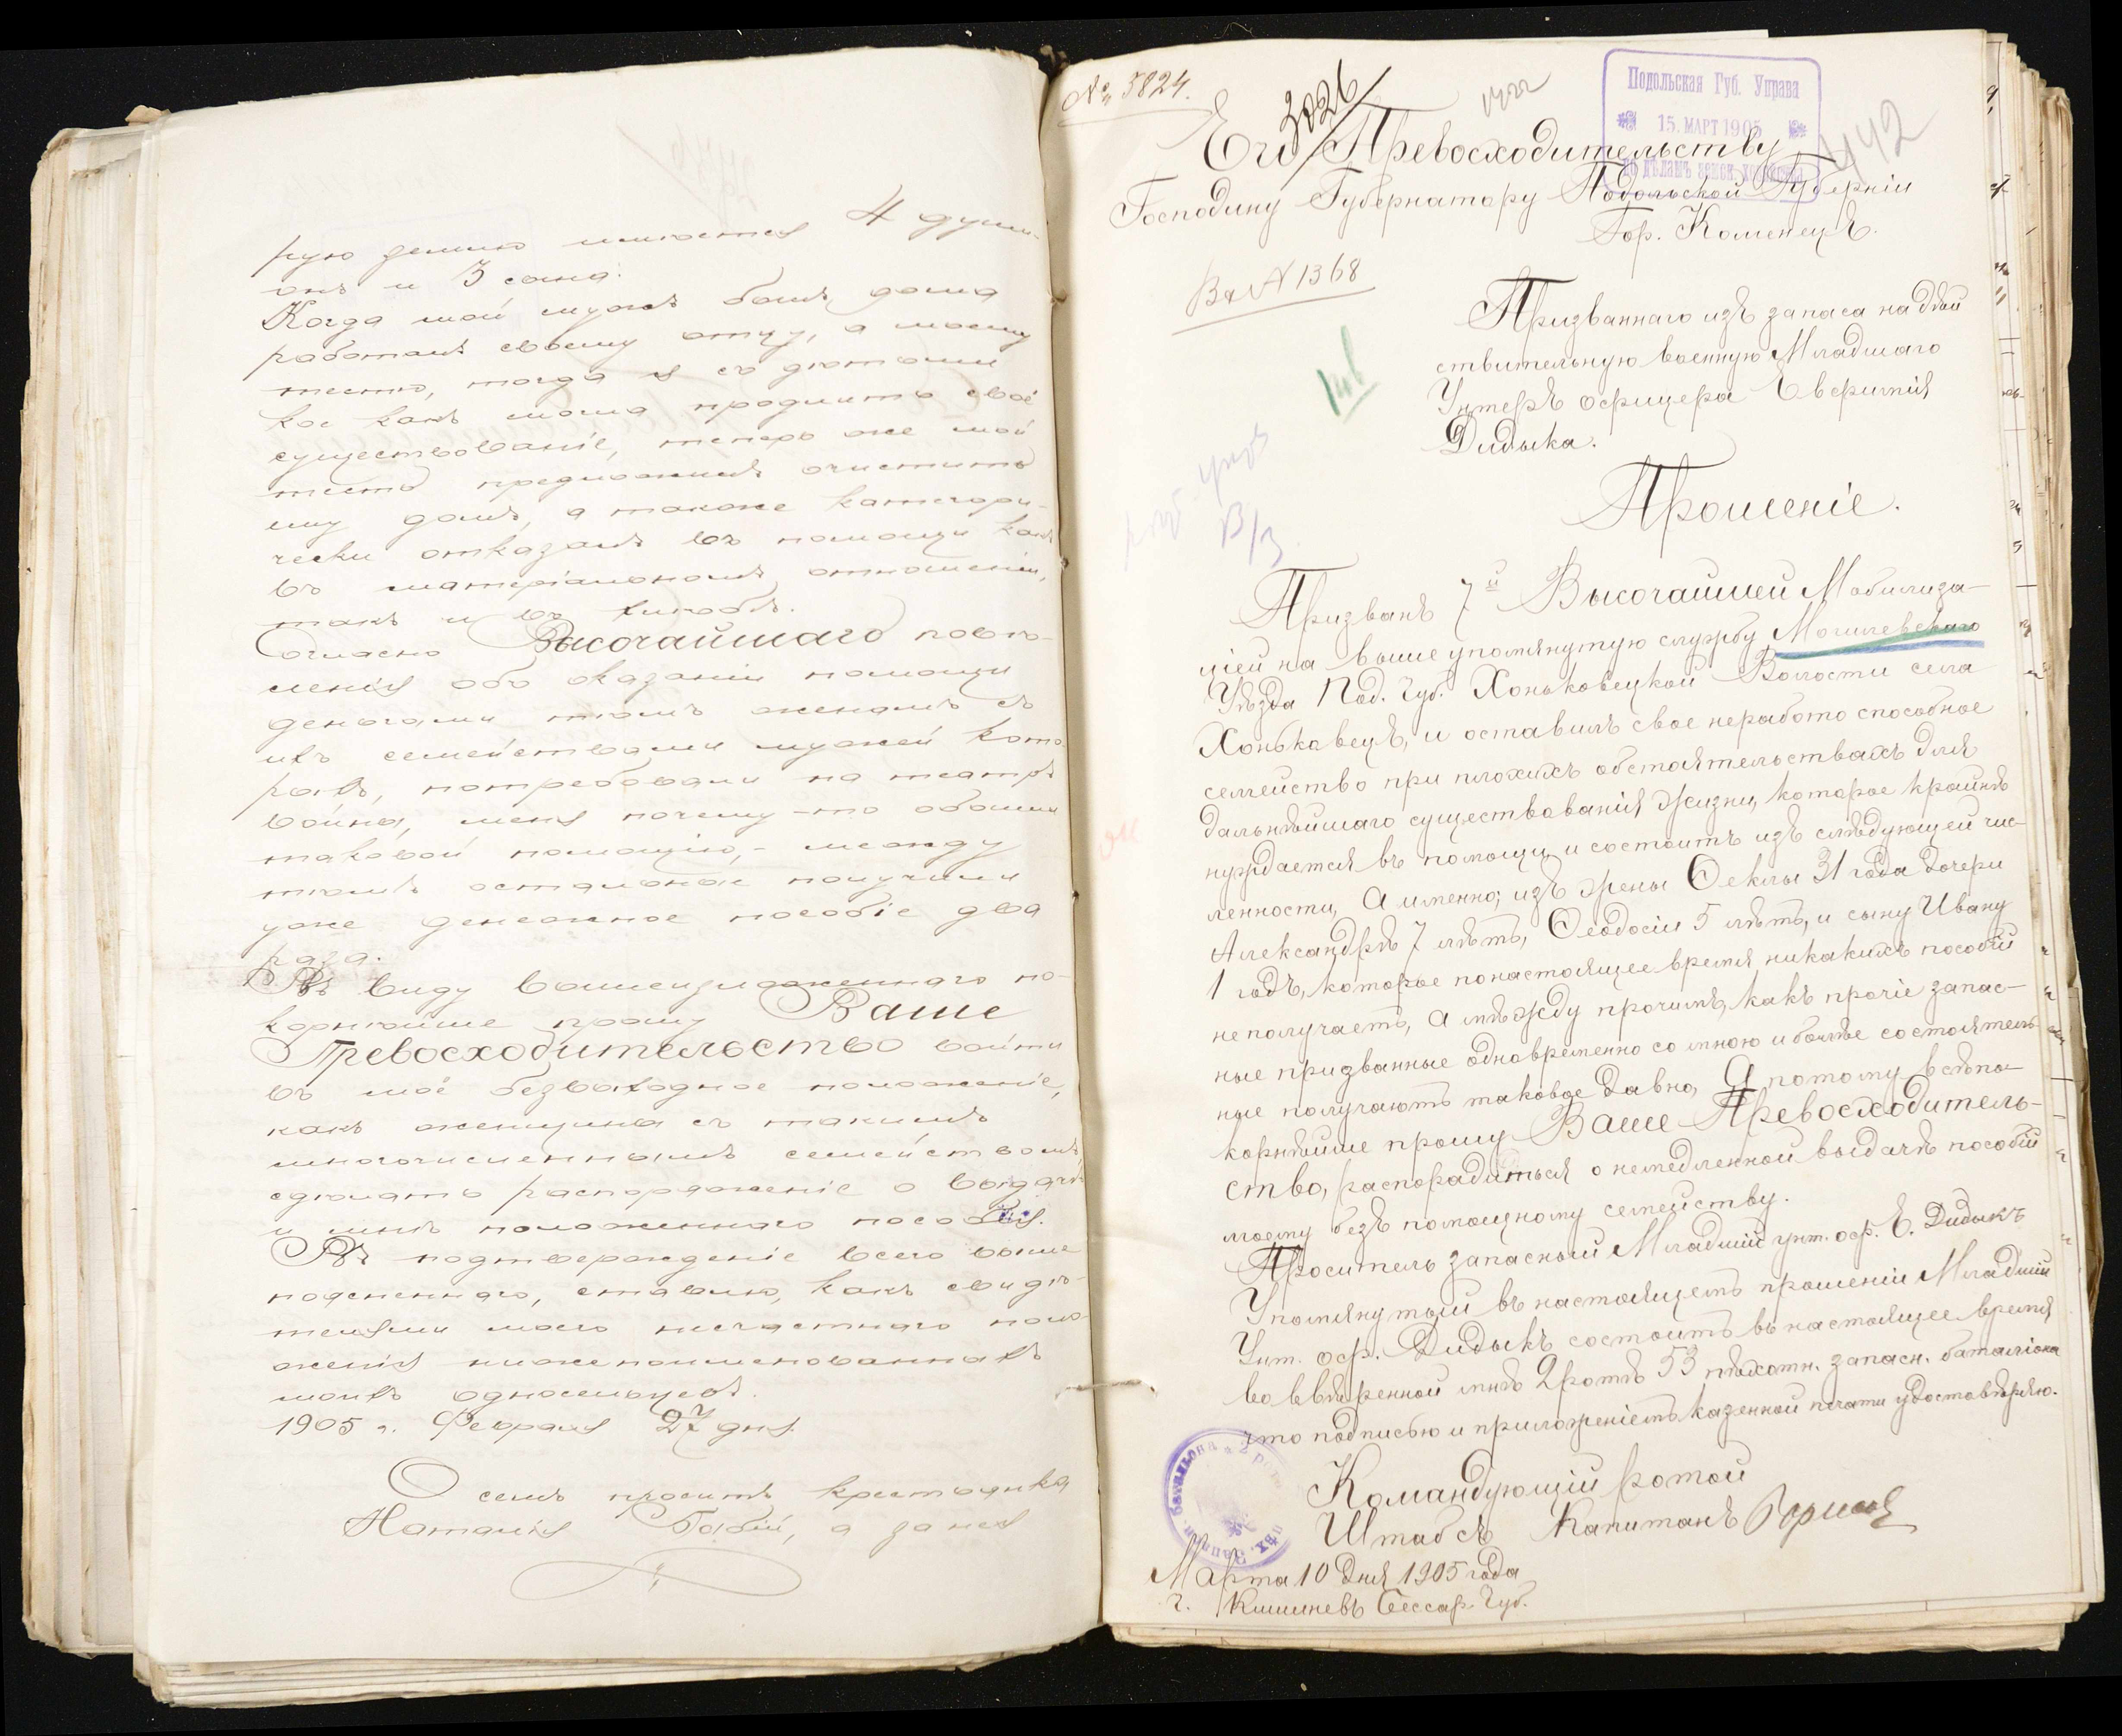 рую землю имеются 4 души
онъ и 3 сына.
Когда мой мужъ былъ дома
работалъ своему отцу, а моему
тестю, тогда я съ дѣтьми
кое какъ могла продлить своё
существованіе, теперь же мой
тесть предложилъ очистить
ему домъ, а также категори-
чески отказалъ въ помощи какъ
въ матеріальномъ отношеніи,
такъ и въ
Согласно Высочайшаго повѣ-
ленія объ оказаніи помощи
деньгами тѣмъ женамъ съ
ихъ семействами мужей кото-
рыхъ, потребовали на театръ
войны, меня почему-то обошли
таковой помощію, - между
тѣмъ остальные получили
уже денежное пособіе два
раза.
Въ виду вышеизложеннаго по-
корнѣйше прошу Ваше
Превосходительство войти
въ моё безвыходное положеніе,
какъ женщины съ такимъ
многочисленнымъ семействомъ,
сдѣлать распоряженіе о выдачѣ
и мнѣ положеннаго пособія.
Въ подтвержденіе всего выше
поясненнаго, ставлю, какъ свидѣ-
телями моего несчастнаго поло-
женія нижепоименованныхъ
моихъ односельцевъ.
1905 г. Февраля 27 дня.
О семъ проситъ крестьянка
Наталія Бабій, а за нея
№ 5824.
3026
1422
Подольская Губ. Управа
15. МАРТ 1905
по дѣламъ земск. хозяйства
442
Его Превосходительству
Господину Губернатору Подольской Губерніи
Гор. Коменецъ.
Вх. № 1368
Призваннаго изъ запаса на дѣй
ствительную военную Младшаго
Унтеръ офицера Евфимія
Дидыка.
Прошеніе.
Призванъ 7й Высочайшей Мобилиза-
ціей на выше упомянутую службу Могилевскаго
Уѣзда Под. Губ. Хоньковецкой Волости села
Хоньковецъ, и оставилъ свое неработо способное
семейство при плохихъ обстоятельствахъ для
дальнѣйшаго существованія жизни, которое крайнѣ
нуждается въ помощи и состоитъ изъ слѣдующей чис-
ленности, а именно; изъ жены Ѳеклы 31 года дочери
Александрѣ 7 лѣтъ, Ѳеодосіи 5 лѣтъ, и сыну Ивану
1 годъ, которые понастоящее время никакихъ пособій
не получаетъ, а мѣжду прочимъ, какъ прочіе запас-
ные призванные одновременно со мною и болѣе состоятель
ные получаютъ таковое давно, А потому всѣпо-
корнѣйше прошу Ваше Превосходитель-
ство, распорадиться о немедленной выдачѣ пособій
моему безъ помощному семейству.
Проситель запасный Младшій унт. оф. Е. Дидыкъ
Упомянутый въ настоящемъ прошеніи Младшій
Унт. оф. Дидыкъ состоитъ въ настоящее время
во ввѣренной мнѣ 2 ротѣ 53 пѣхотн. запасн. баталіона
что подписью и приложеніемъ казенной печати удостовѣряю.
Командующій ротой
Штабсъ Капитанъ
Марта 10 дня 1905 года
г. Кишиневъ Бессар. Губ.